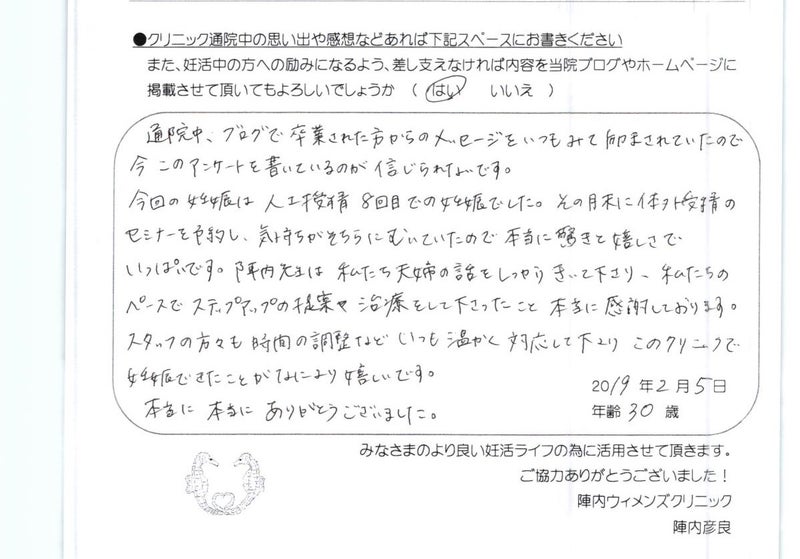 ●クリニック通院中の思い出や感想などあれば下記スペースにお書きください
また、妊活中の方への励みになるよう、差し支えなければ内容を当院ブログやホームページに
掲載させて頂いてもよろしいでしょうか ( はい いいえ )
通院中、ブログで卒業された方からのメッセージをいつもみて励まされていたので
今このアンケートを書いているのが信じられないです。
今回の妊娠は人工授精8回目での妊娠でした。その月末に体外受精の
セミナーを予約し、気持ちがそちらにむいていたので本当に驚きと嬉しさで
いっぱいです。陣内先生は私たち夫婦の話をしっかりきいて下さり、私たちの
ペースでステップアップの提案や治療をして下さったこと本当に感謝しております。
スタッフの方々も時間の調整などいつも温かく対応して下さりこのクリニックで
妊娠できたことがなにより嬉しいです。
本当に本当にありがとうございました。
2019年2月5日
年齢30歳
みなさまのより良い妊活ライフの為に活用させて頂きます。
ご協力ありがとうございました!
陣内ウィメンズクリニック
陣内彦良